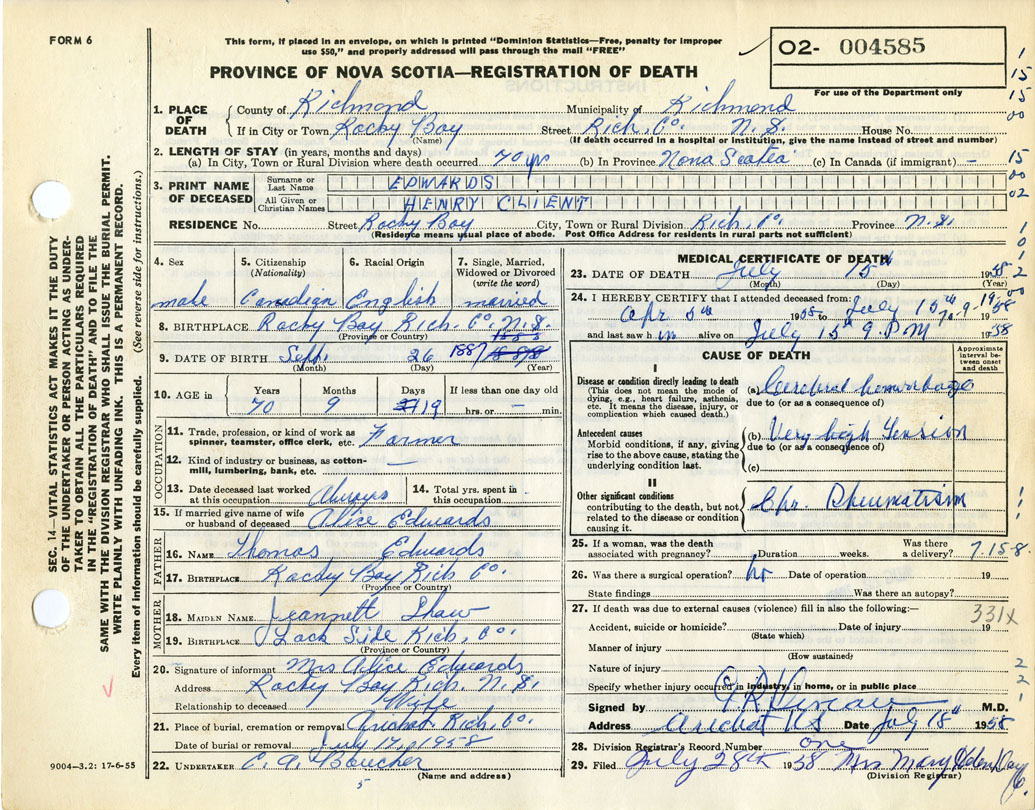 FORM 6
This form, if placed in an envelope, on which is printed "Dominion Statistics—Free, penalty for improper
use $50," and properly addressed will pass through the mail "FREE"
O2- 004585
For use of the Department only
PROVINCE OF NOVA SCOTIA—REGISTRATION OF DEATH
1. PLACE OF DEATH County of Richmond Municipality of Richmond
If in City or Town Rocky Bay Street Rich. Co. N.S. House No.
(Name) (If death occurred in a hospital or institution, give the name instead of street and number)
2. LENGTH OF STAY (in years, months and days)
(a) In City, Town or Rural Division where death occurred 70 yrs (b) In Province Nova Scotia (c) In Canada (if immigrant) —
3. PRINT NAME OF DECEASED Surname or Last Name EDWARDS
All Given or Christian Names HENRY CLIENT
RESIDENCE No. Street Rocky Bay City, Town or Rural Division Rich. Co. Province N.S.
(Residence means usual place of abode. Post Office Address for residents in rural parts not sufficient)
4. Sex 5. Citizenship (Nationality) 6. Racial Origin 7. Single, Married, Widowed or Divorced (write the word)
male Canadian English married
8. BIRTHPLACE Rocky Bay Rich. Co. N.S.
(Province or Country)
9. DATE OF BIRTH Sept. 26 1887
(Month) (Day) (Year)
10. AGE in Years Months Days If less than one day old
70 9 19 hrs. or — min.
OCCUPATION
11. Trade, profession, or kind of work as spinner, teamster, office clerk, etc. Farmer
12. Kind of industry or business, as cotton-mill, lumbering, bank, etc. —
13. Date deceased last worked at this occupation Always
14. Total yrs. spent in this occupation -
15. If married give name of wife or husband of deceased Alice Edwards
FATHER
16. NAME Thomas Edwards
17. BIRTHPLACE Rocky Bay Rich Co.
(Province or Country)
MOTHER
18. MAIDEN NAME Jeannett Shaw
19. BIRTHPLACE Lock Side Rich. Co.
(Province or Country)
20. Signature of informant Mrs Alice Edwards
Address Rocky Bay Rich. N.S.
Relationship to deceased Wife
21. Place of burial, cremation or removal Arichat Rich. Co.
Date of burial or removal July 17, 1958
22. UNDERTAKER C. A. Boucher
(Name and address)
5
MEDICAL CERTIFICATE OF DEATH
23. DATE OF DEATH July 15th 1958
(Month) (Day)
24. I HEREBY CERTIFY that I attended deceased from:
Apr 5th 1955 to July 15th 1958
and last saw h im alive on July 15th 9 P M 1958
CAUSE OF DEATH
Approximate interval between onset and death
I
Disease or condition directly leading to death
(This does not mean the mode of dying, e.g., heart failure, asthenia, etc. It means the disease, injury, or complication which caused death.)
(a) Cerebral hemorrhage
due to (or as a consequence of)
Antecedent causes
Morbid conditions, if any, giving rise to the above cause, stating the underlying condition last.
(b) Very high Tension
due to (or as a consequence of)
(c)
II
Other significant conditions
contributing to the death, but not related to the disease or condition causing it.
Chr. Rheumatism
25. If a woman, was the death associated with pregnancy? Duration weeks. Was there a delivery? 7.15-8
26. Was there a surgical operation? no Date of operation 19
State findings Was there an autopsy?
27. If death was due to external causes (violence) fill in also the following:—
331X
Accident, suicide or homicide? Date of injury 19
(State which)
Manner of injury
(How sustained)
Nature of injury
Specify whether injury occurred in industry, in home, or in public place
Signed by M.D.
Address Arichat NS Date July 18th 1958
28. Division Registrar's Record Number one
29. Filed July 28th 1958 Mrs Mary
(Division Registrar)
SEC. 14—VITAL STATISTICS ACT MAKES IT THE DUTY
OF THE UNDERTAKER OR PERSON ACTING AS UNDER-
TAKER TO OBTAIN ALL THE PARTICULARS REQUIRED
IN THE "REGISTRATION OF DEATH" AND TO FILE THE
SAME WITH THE DIVISION REGISTRAR WHO SHALL ISSUE THE BURIAL PERMIT.
WRITE PLAINLY WITH UNFADING INK. THIS IS A PERMANENT RECORD.
Every item of information should be carefully supplied. (See reverse side for instructions.)
9004—3.2: 17-6-55